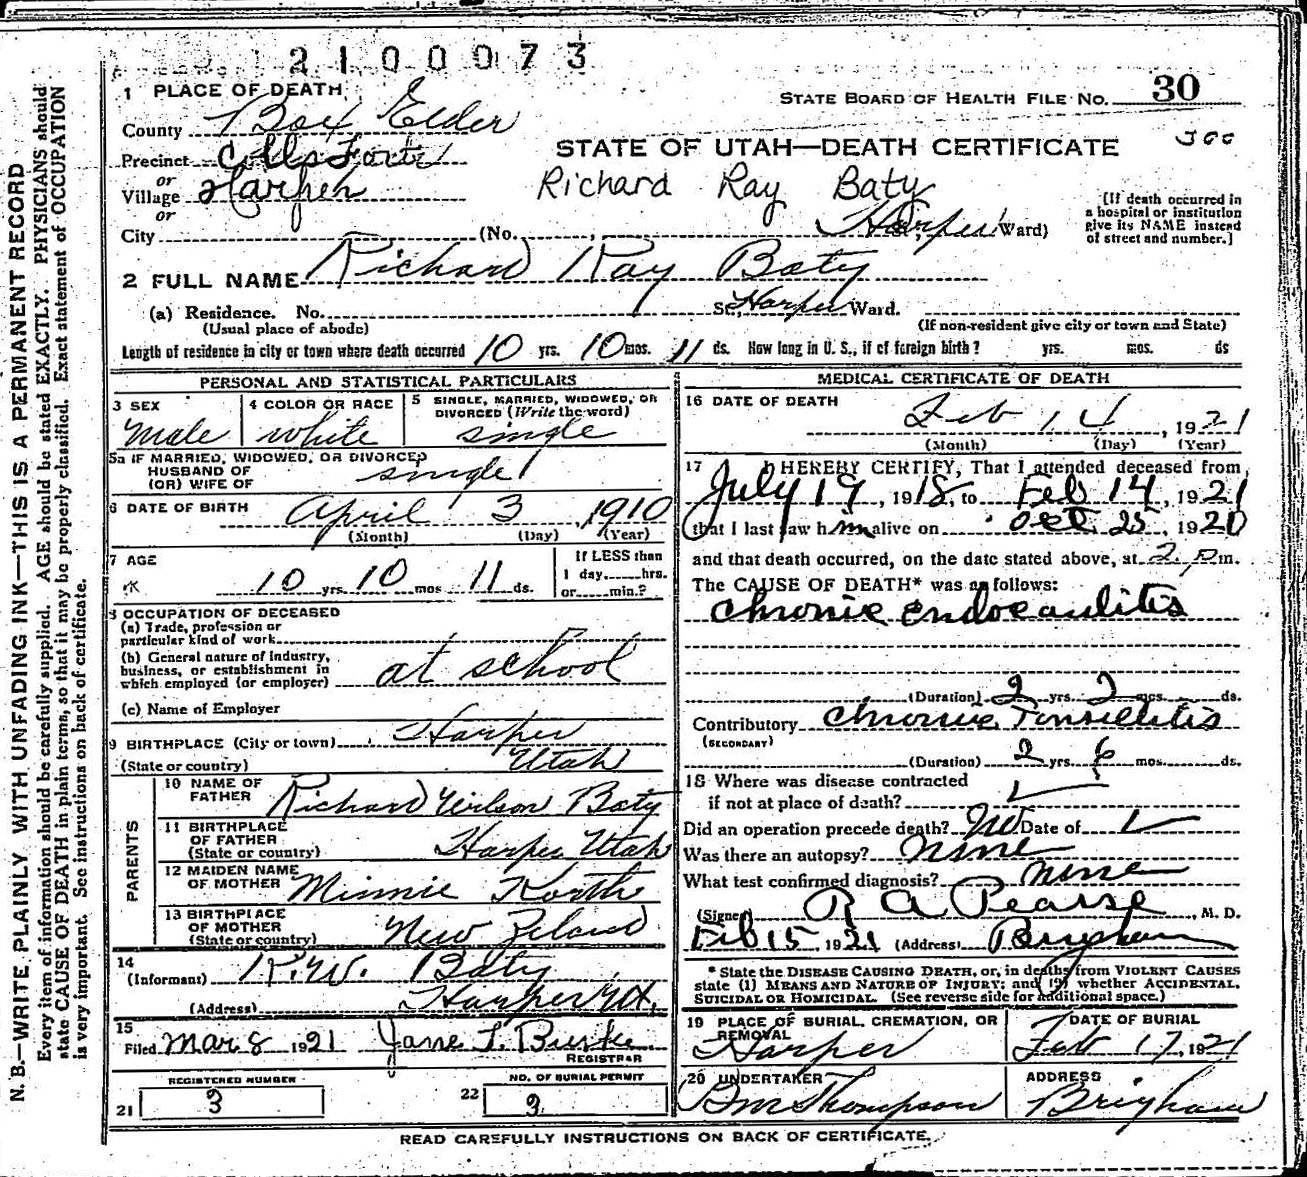 2100073
1 PLACE OF DEATH
STATE BOARD OF HEALTH FILE NO. 30
County Box Elder
300
Precinct
STATE OF UTAH—DEATH CERTIFICATE
or
Village Harper
Richard Ray Baty
or
[If death occurred in a hospital or institution give its NAME instead of street and number.]
City (No. , Harper Ward)
2 FULL NAME Richard Ray Baty
(a) Residence. No. St., Harper Ward.
(Usual place of abode) (If non-resident give city or town and State)
Length of residence in city or town where death occurred 10 yrs. 10 mos. 11 ds. How long in U. S., if of foreign birth? yrs. mos. ds
PERSONAL AND STATISTICAL PARTICULARS
3 SEX 4 COLOR OR RACE 5 SINGLE, MARRIED, WIDOWED, OR DIVORCED (Write the word)
Male white single
5a IF MARRIED, WIDOWED, OR DIVORCED
HUSBAND OF
(OR) WIFE OF single
6 DATE OF BIRTH April 3, 1910
(Month) (Day) (Year)
7 AGE If LESS than
10 yrs 10 mos 11 ds. 1 day, hrs.
or min.?
8 OCCUPATION OF DECEASED
(a) Trade, profession or
particular kind of work
(b) General nature of industry,
business, or establishment in
which employed (or employer) at school
(c) Name of Employer
9 BIRTHPLACE (City or town) Harper
(State or country) Utah
PARENTS
10 NAME OF FATHER Richard Wilson Baty
11 BIRTHPLACE OF FATHER (State or country) Harper Utah
12 MAIDEN NAME OF MOTHER Minnie Korth
13 BIRTHPLACE OF MOTHER (State or country) New Zeland
14
(Informant) R.W. Baty
(Address) Harper Ut.
15
Filed Mar 8 1921 Jane L. Burke
REGISTRAR
REGISTERED NUMBER NO. OF BURIAL PERMIT
21 3 22 3
MEDICAL CERTIFICATE OF DEATH
16 DATE OF DEATH
Feb 14, 1921
(Month) (Day) (Year)
17 I HEREBY CERTIFY, That I attended deceased from
July 19, 1918, to Feb 14, 1921
that I last saw him alive on Oct 25, 1920
and that death occurred, on the date stated above, at 2 p m.
The CAUSE OF DEATH* was as follows:
Chronic endocarditis
(Duration) 2 yrs. 2 mos. ds.
Contributory Chronic Tonsillitis
(SECONDARY)
(Duration) 2 yrs 6 mos. ds.
18 Where was disease contracted
if not at place of death?
Did an operation precede death? No Date of
Was there an autopsy? None
What test confirmed diagnosis? none
(Signed) R A Pearse, M. D.
Feb 15, 1921 (Address) Brigham
* State the DISEASE CAUSING DEATH, or, in deaths from VIOLENT CAUSES
state (1) MEANS AND NATURE OF INJURY; and (2) whether ACCIDENTAL,
SUICIDAL OR HOMICIDAL. (See reverse side for additional space.)
19 PLACE OF BURIAL, CREMATION, OR REMOVAL DATE OF BURIAL
Harper Feb 17, 1921
20 UNDERTAKER ADDRESS
BM Thompson Brigham
READ CAREFULLY INSTRUCTIONS ON BACK OF CERTIFICATE.
N. B.—WRITE PLAINLY WITH UNFADING INK—THIS IS A PERMANENT RECORD
Every item of information should be carefully supplied. AGE should be stated EXACTLY. PHYSICIANS should
state CAUSE OF DEATH in plain terms, so that it may be properly classified. Exact statement of OCCUPATION
is very important. See instructions on back of certificate.